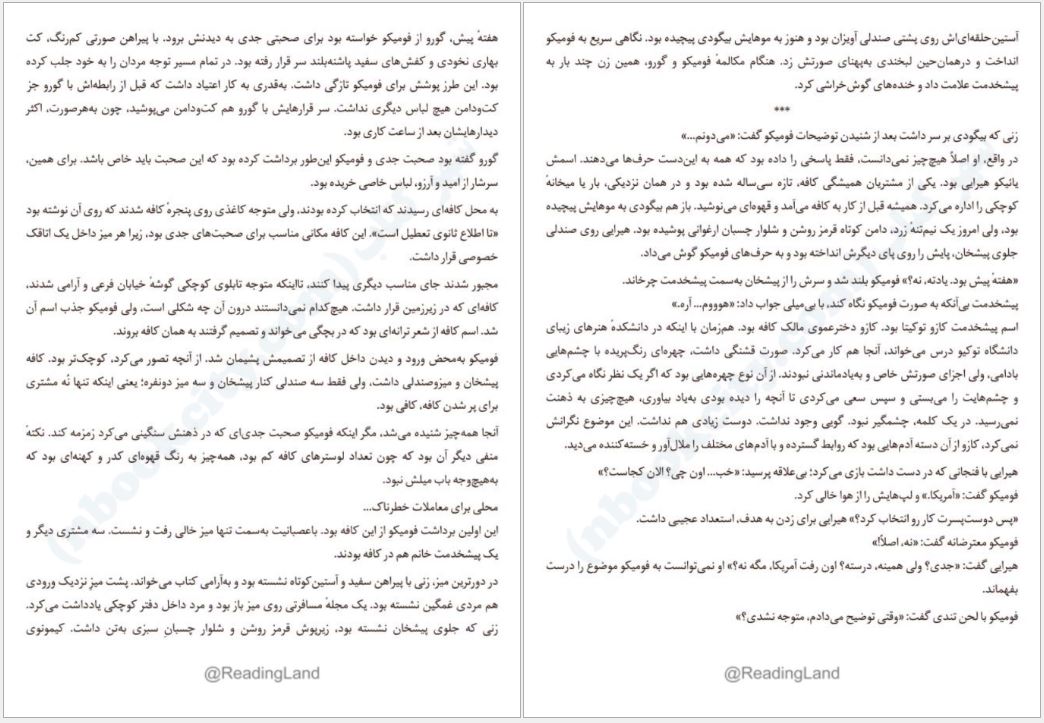 هفتهٔ پیش، گورو از فومیکو خواسته بود برای صحبتی جدی به دیدنش برود. با پیراهن صورتی کم‌رنگ، کت
بهاری نخودی و کفش‌های سفید پاشنه‌بلند سر قرار رفته بود. در تمام مسیر توجه مردان را به خود جلب کرده
بود. این طرز پوشش برای فومیکو تازگی داشت. به‌قدری به کار اعتیاد داشت که قبل از رابطه‌اش با گورو جز
کت‌ودامن هیچ لباس دیگری نداشت. سر قرارهایش با گورو هم کت‌ودامن می‌پوشید، چون به‌هرصورت، اکثر
دیدارهایشان بعد از ساعت کاری بود.
گورو گفته بود صحبت جدی و فومیکو این‌طور برداشت کرده بود که این صحبت باید خاص باشد. برای همین،
سرشار از امید و آرزو، لباس خاصی خریده بود.
به محل کافه‌ای رسیدند که انتخاب کرده بودند، ولی متوجه کاغذی روی پنجرهٔ کافه شدند که روی آن نوشته بود
«تا اطلاع ثانوی تعطیل است». این کافه مکانی مناسب برای صحبت‌های جدی بود، زیرا هر میز داخل یک اتاقک
خصوصی قرار داشت.
مجبور شدند جای مناسب دیگری پیدا کنند، تااینکه متوجه تابلوی کوچکی گوشهٔ خیابان فرعی و آرامی شدند،
کافه‌ای که در زیرزمین قرار داشت. هیچ‌کدام نمی‌دانستند درون آن چه شکلی است، ولی فومیکو جذب اسم آن
شد. اسم کافه از شعر ترانه‌ای بود که در بچگی می‌خواند و تصمیم گرفتند به همان کافه بروند.
فومیکو به‌محض ورود و دیدن داخل کافه از تصمیمش پشیمان شد. از آنچه تصور می‌کرد، کوچک‌تر بود. کافه
پیشخان و میزوصندلی داشت، ولی فقط سه صندلی کنار پیشخان و سه میز دونفره؛ یعنی اینکه تنها نُه مشتری
برای پر شدن کافه، کافی بود.
آنجا همه‌چیز شنیده می‌شد، مگر اینکه فومیکو صحبت جدی‌ای که در ذهنش سنگینی می‌کرد زمزمه کند. نکتهٔ
منفی دیگر آن بود که چون تعداد لوسترهای کافه کم بود، همه‌چیز به رنگ قهوه‌ای کدر و کهنه‌ای بود که
به‌هیچ‌وجه باب میلش نبود.
محلی برای معاملات خطرناک...
این اولین برداشت فومیکو از این کافه بود. باعصبانیت به‌سمت تنها میز خالی رفت و نشست. سه مشتری دیگر و
یک پیشخدمت خانم هم در کافه بودند.
در دورترین میز، زنی با پیراهن سفید و آستین‌کوتاه نشسته بود و به‌آرامی کتاب می‌خواند. پشت میزِ نزدیک ورودی
هم مردی غمگین نشسته بود. یک مجلهٔ مسافرتی روی میز باز بود و مرد داخل دفتر کوچکی یادداشت می‌کرد.
زنی که جلوی پیشخان نشسته بود، زیرپوش قرمز روشن و شلوار چسبان سبزی به‌تن داشت. کیمونوی
@ReadingLand
آستین‌حلقه‌ای‌اش روی پشتی صندلی آویزان بود و هنوز به موهایش بیگودی پیچیده بود. نگاهی سریع به فومیکو
انداخت و درهمان‌حین لبخندی به‌پهنای صورتش زد. هنگام مکالمهٔ فومیکو و گورو، همین زن چند بار به
پیشخدمت علامت داد و خنده‌های گوش‌خراشی کرد.
***
زنی که بیگودی بر سر داشت بعد از شنیدن توضیحات فومیکو گفت: «می‌دونم...»
در واقع، او اصلاً هیچ‌چیز نمی‌دانست، فقط پاسخی را داده بود که همه به این‌دست حرف‌ها می‌دهند. اسمش
یائیکو هیرایی بود. یکی از مشتریان همیشگی کافه، تازه سی‌ساله شده بود و در همان نزدیکی، بار یا میخانهٔ
کوچکی را اداره می‌کرد. همیشه قبل از کار به کافه می‌آمد و قهوه‌ای می‌نوشید. باز هم بیگودی به موهایش پیچیده
بود، ولی امروز یک نیم‌تنهٔ زرد، دامن کوتاه قرمز روشن و شلوار چسبان ارغوانی پوشیده بود. هیرایی روی صندلی
جلوی پیشخان، پایش را روی پای دیگرش انداخته بود و به حرف‌های فومیکو گوش می‌داد.
«هفتهٔ پیش بود. یادته، نه؟» فومیکو بلند شد و سرش را از پیشخان به‌سمت پیشخدمت چرخاند.
پیشخدمت بی‌آنکه به صورت فومیکو نگاه کند، با بی‌میلی جواب داد: «هوووم... آره.»
اسم پیشخدمت کازو توکیتا بود. کازو دخترعموی مالک کافه بود. هم‌زمان با اینکه در دانشکدهٔ هنرهای زیبای
دانشگاه توکیو درس می‌خواند، آنجا هم کار می‌کرد. صورت قشنگی داشت، چهره‌ای رنگ‌پریده با چشم‌هایی
بادامی، ولی اجزای صورتش خاص و به‌یادماندنی نبودند. از آن نوع چهره‌هایی بود که اگر یک نظر نگاه می‌کردی
و چشم‌هایت را می‌بستی و سپس سعی می‌کردی تا آنچه را دیده بودی به‌یاد بیاوری، هیچ‌چیزی به ذهنت
نمی‌رسید. در یک کلمه، چشمگیر نبود. گویی وجود نداشت. دوست زیادی هم نداشت. این موضوع نگرانش
نمی‌کرد، کازو از آن دسته آدم‌هایی بود که روابط گسترده و با آدم‌های مختلف را ملال‌آور و خسته‌کننده می‌دید.
هیرایی با فنجانی که در دست داشت بازی می‌کرد؛ بی‌علاقه پرسید: «خب... اون چی؟ الان کجاست؟»
فومیکو گفت: «آمریکا.» و لپ‌هایش را از هوا خالی کرد.
«پس دوست‌پسرت کار رو انتخاب کرد؟» هیرایی برای زدن به هدف، استعداد عجیبی داشت.
فومیکو معترضانه گفت: «نه، اصلاً!»
هیرایی گفت: «جدی؟ ولی همینه، درسته؟ اون رفت آمریکا، مگه نه؟» او نمی‌توانست به فومیکو موضوع را درست
بفهماند.
فومیکو با لحن تندی گفت: «وقتی توضیح می‌دادم، متوجه نشدی؟»
@ReadingLand